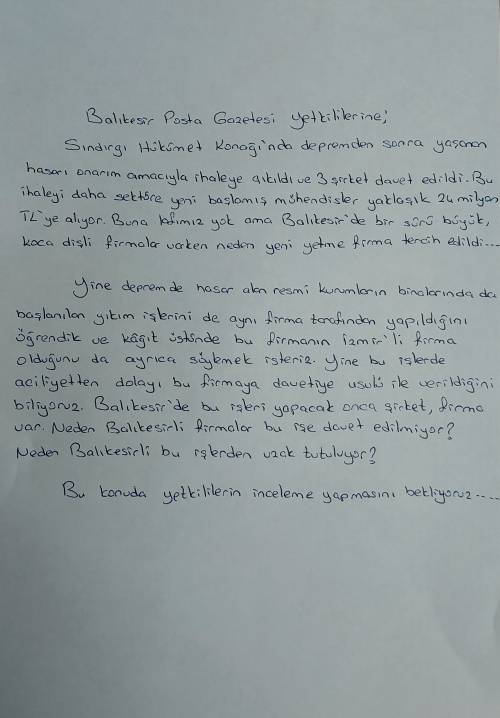 Balıkesir Posta Gazetesi yetkililerine;
Sındırgı Hükümet Konağı'nda depremden sonra yaşanan
hasarı onarım amacıyla ihaleye çıkıldı ve 3 şirket davet edildi. Bu
ihaleyi daha sektöre yeni başlamış mühendisler yaklaşık 24 milyon
TL'ye alıyor. Buna lafımız yok ama Balıkesir'de bir sürü büyük,
koca dişli firmalar varken neden yeni yetme firma tercih edildi....
Yine depremde hasar alan resmi kurumların binalarında da
başlanılan yıkım işlerini de aynı firma tarafından yapıldığını
öğrendik ve kâğıt üstünde bu firmanın İzmir'li firma
olduğunu da ayrıca söylemek isteriz. Yine bu işlerde
aciliyetten dolayı bu firmaya davetiye usulü ile verildiğini
biliyoruz. Balıkesir'de bu işleri yapacak onca şirket, firma
var. Neden Balıkesirli firmalar bu işe davet edilmiyor?
Neden Balıkesirli bu işlerden uzak tutuluyor?
Bu konuda yetkililerin inceleme yapmasını bekliyoruz.....